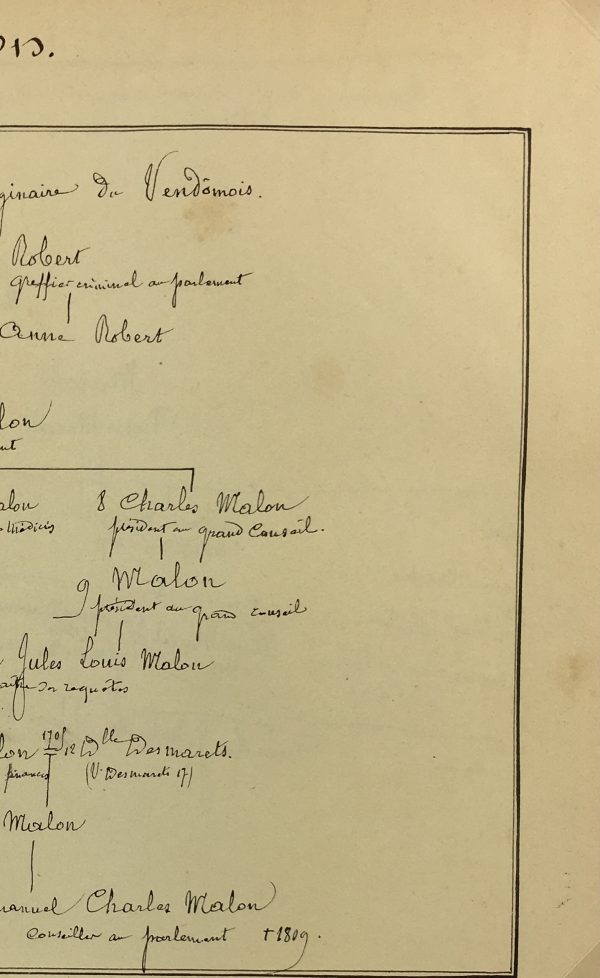 ginaire du Vendômois.
Robert
greffier criminel au parlement
Anne Robert
lon
nt
alon 8 Charles Malon
Médicis président au grand Conseil.
9 Malon
président au grand conseil
Jules Louis Malon
aitre des requêtes
lon 1705 12 Dlle Desmarets.
finances (V. Desmarets 17)
Malon
manuel Charles Malon
Conseiller au parlement † 1809.